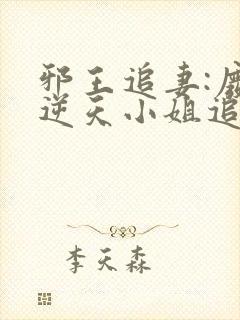 邪王追妻:废
逆天小姐追
李天森